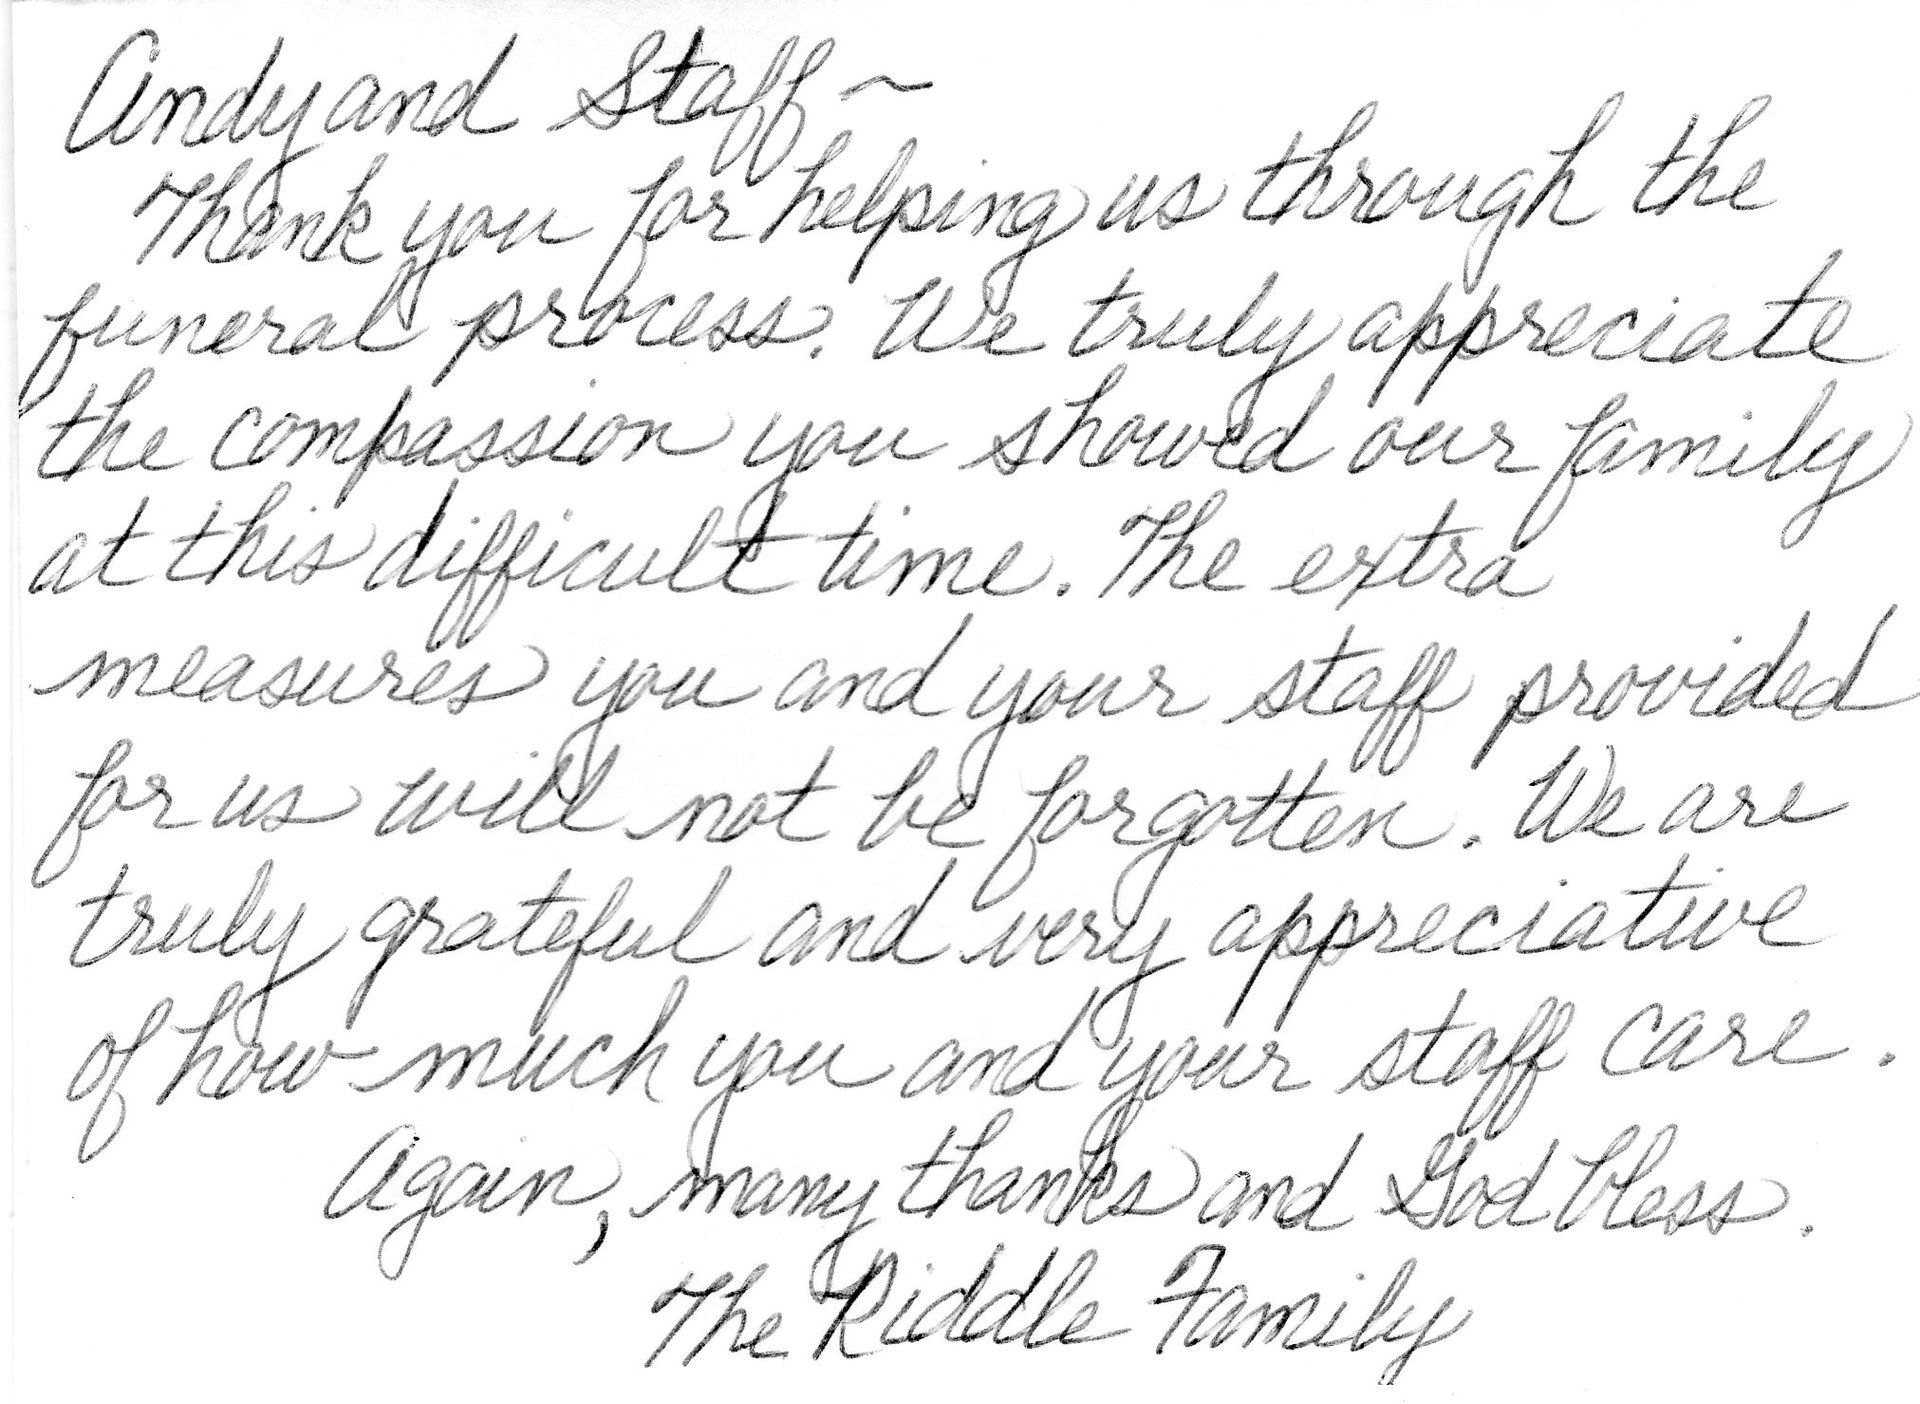 Andy and Staff ~
Thank you for helping us through the
funeral process. We truly appreciate
the compassion you showed our family
at this difficult time. The extra
measures you and your staff provided
for us will not be forgotten. We are
truly grateful and very appreciative
of how much you and your staff care.
Again, many thanks and God bless.
The Riddle Family